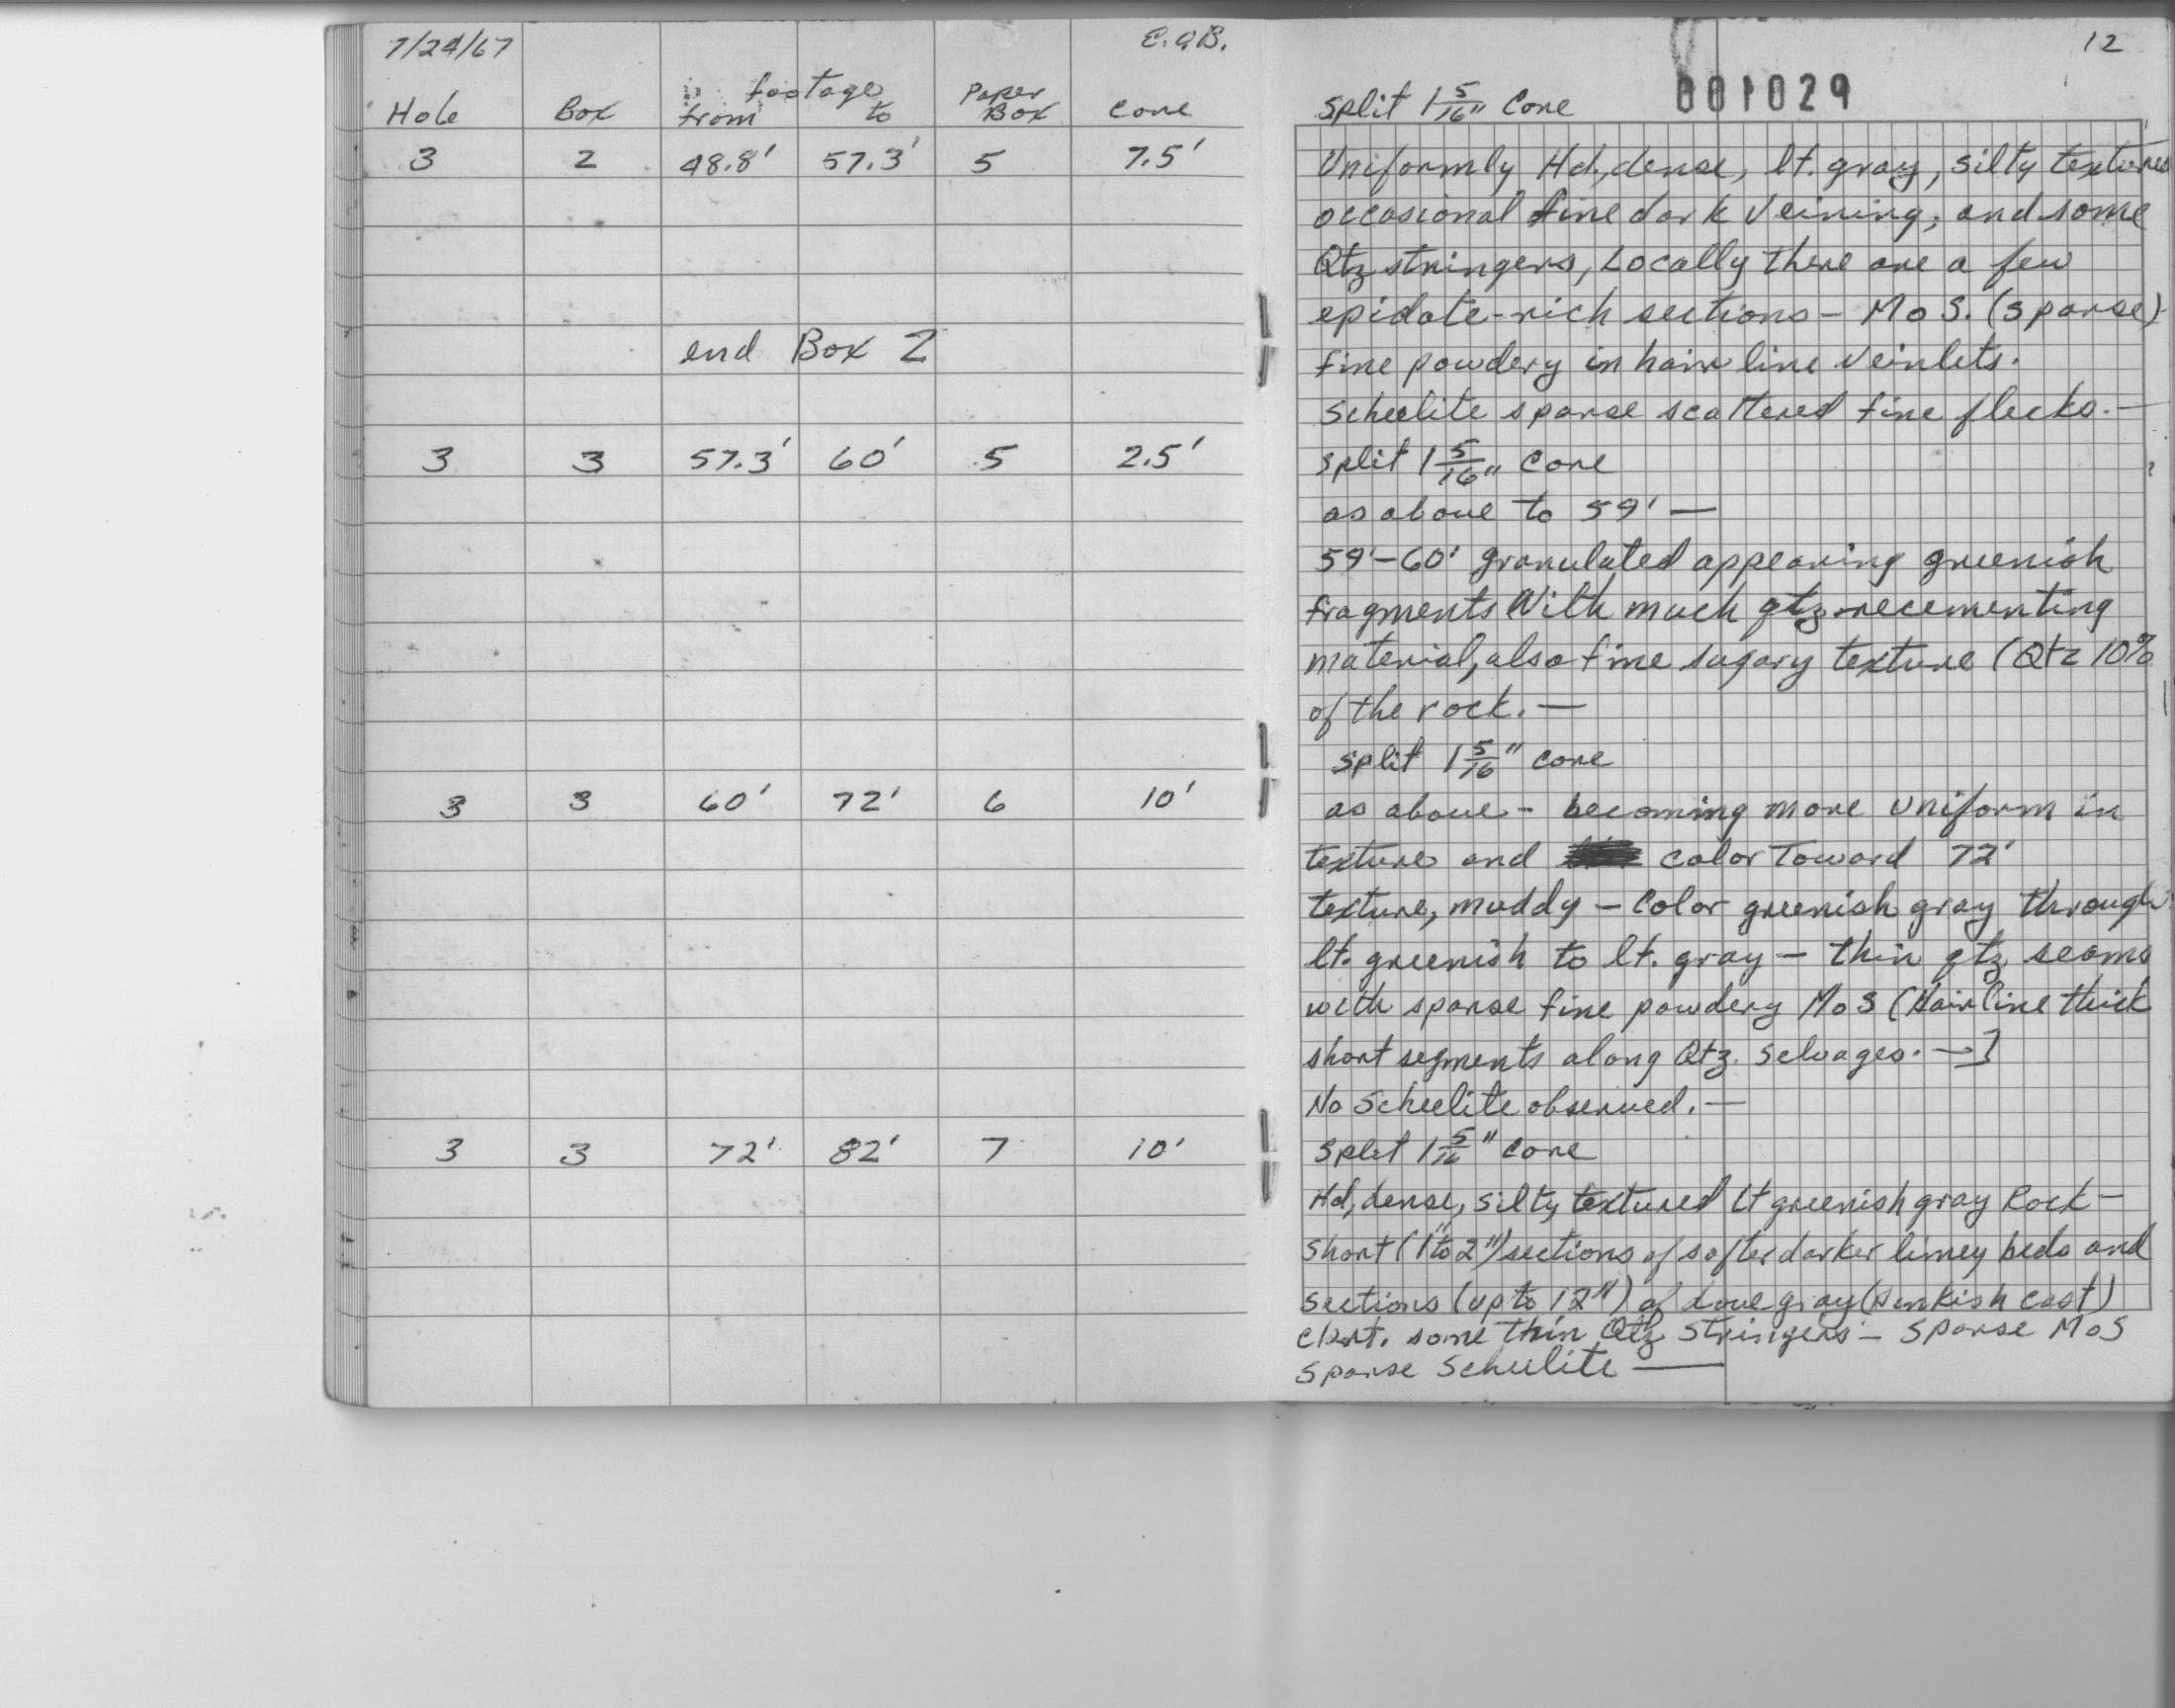 7/24/67 E.G.B.
footage
Hole Box from to Paper Box Core
3 2 48.8' 57.3' 5 7.5'
end Box 2
3 3 57.3' 60' 5 2.5'
3 3 60' 72' 6 10'
3 3 72' 82' 7 10'
12
001029
split 1 5/16" Core
Uniformly Hd., dense, lt. gray, silty textured
occasional fine dark veining, and some
Qtz stringers, Locally there are a few
epidote-rich sections - MoS. (sparse)
fine powdery in hair line veinlets.
Scheelite sparse scattered fine flecks. —
split 1 5/16" Core
as above to 59' —
59'-60' granulated appearing greenish
fragments With much qtz recementing
material, also fine sugary texture (Qtz 10%
of the rock. —
split 1 5/16" core
as above - becoming more uniform in
texture and color Toward 72'
texture, muddy - Color greenish gray through
lt. greenish to lt. gray - thin qtz seams
with sparse fine powdery MoS (Hairline thick
short segments along Qtz. selvages. —]
No Scheelite observed. —
split 1 5/16" core
Hd, dense, silty textured Lt greenish gray Rock -
Short (1" to 2") sections of softer darker limey beds and
sections (up to 12") of dove gray (pinkish cast)
chert. some thin Qtz stringers - sparse MoS
Sparse Scheelite —